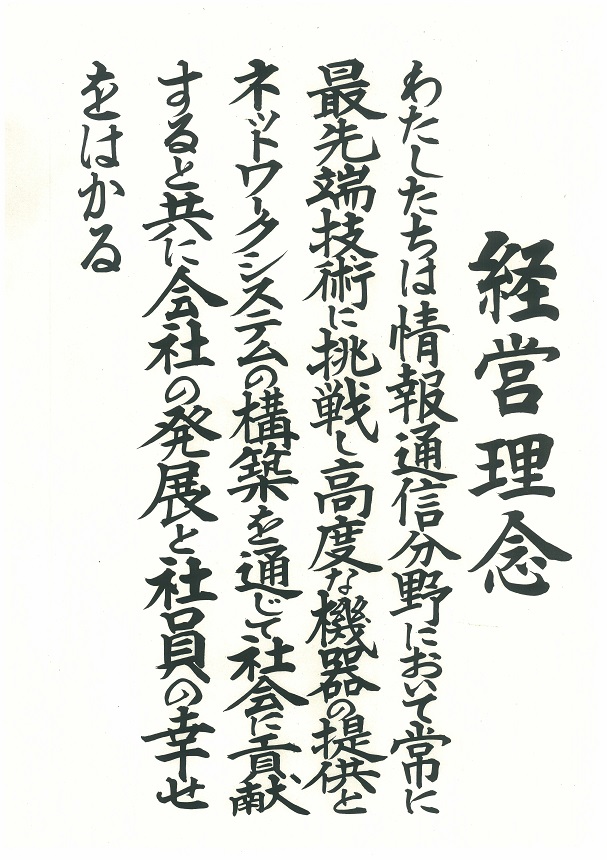 経営理念
わたしたちは情報通信分野において常に
最先端技術に挑戦し高度な機器の提供と
ネットワークシステムの構築を通じて社会に貢献
すると共に会社の発展と社員の幸せ
をはかる